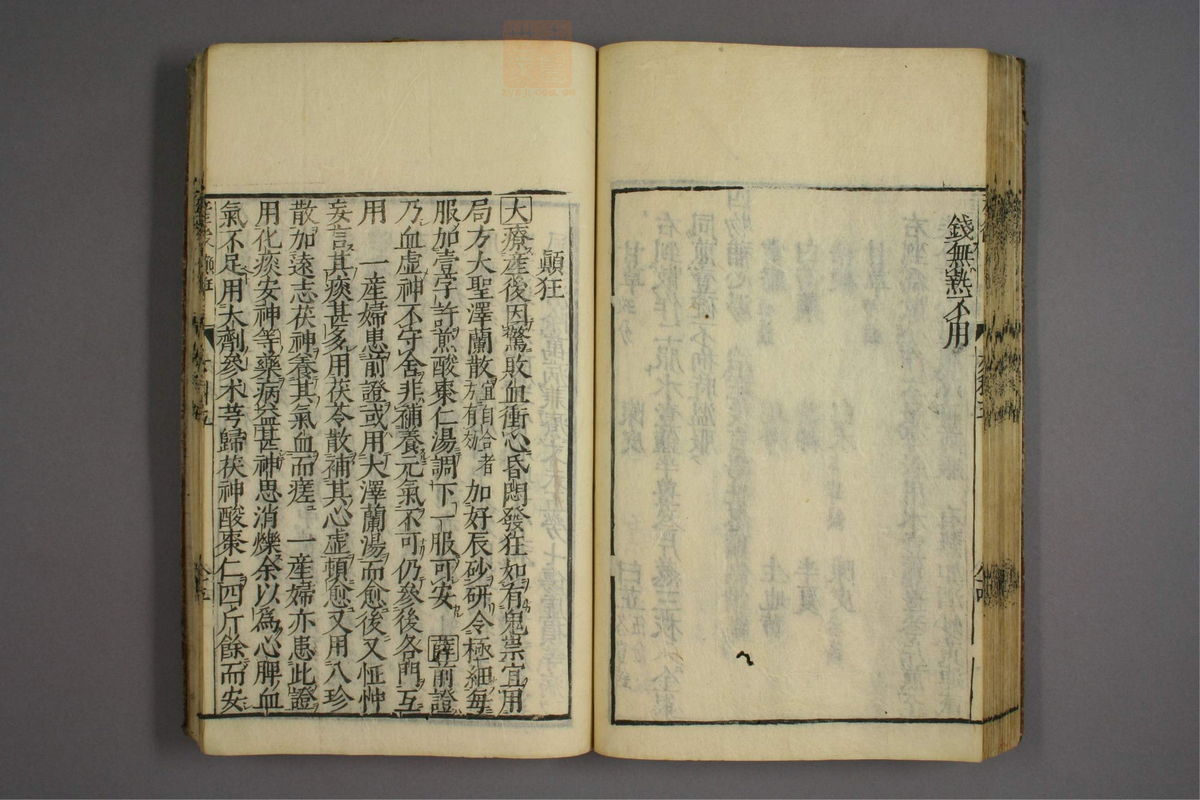 錢無熱不用
顛狂
大療產後因驚敗血衝心昏悶發狂如有鬼祟宜用
局方大聖澤蘭散宜自合者方有效加好辰砂研令極細每
服加壹字許煎酸棗仁湯調下一服可安 薛前證
乃血虛神不守舍非補養元氣不可仍參後各門互
用 一產婦患前證或用大澤蘭湯而愈後又怔忡
妄言其痰甚多用茯苓散補其心虛頓愈又用八珍
散加遠志茯神養其氣血而瘥 一產婦亦患此證
用化痰安神等藥病益甚神思消爍余以爲心脾血
氣不足用大劑參朮芎歸茯神酸棗仁四斤餘而安